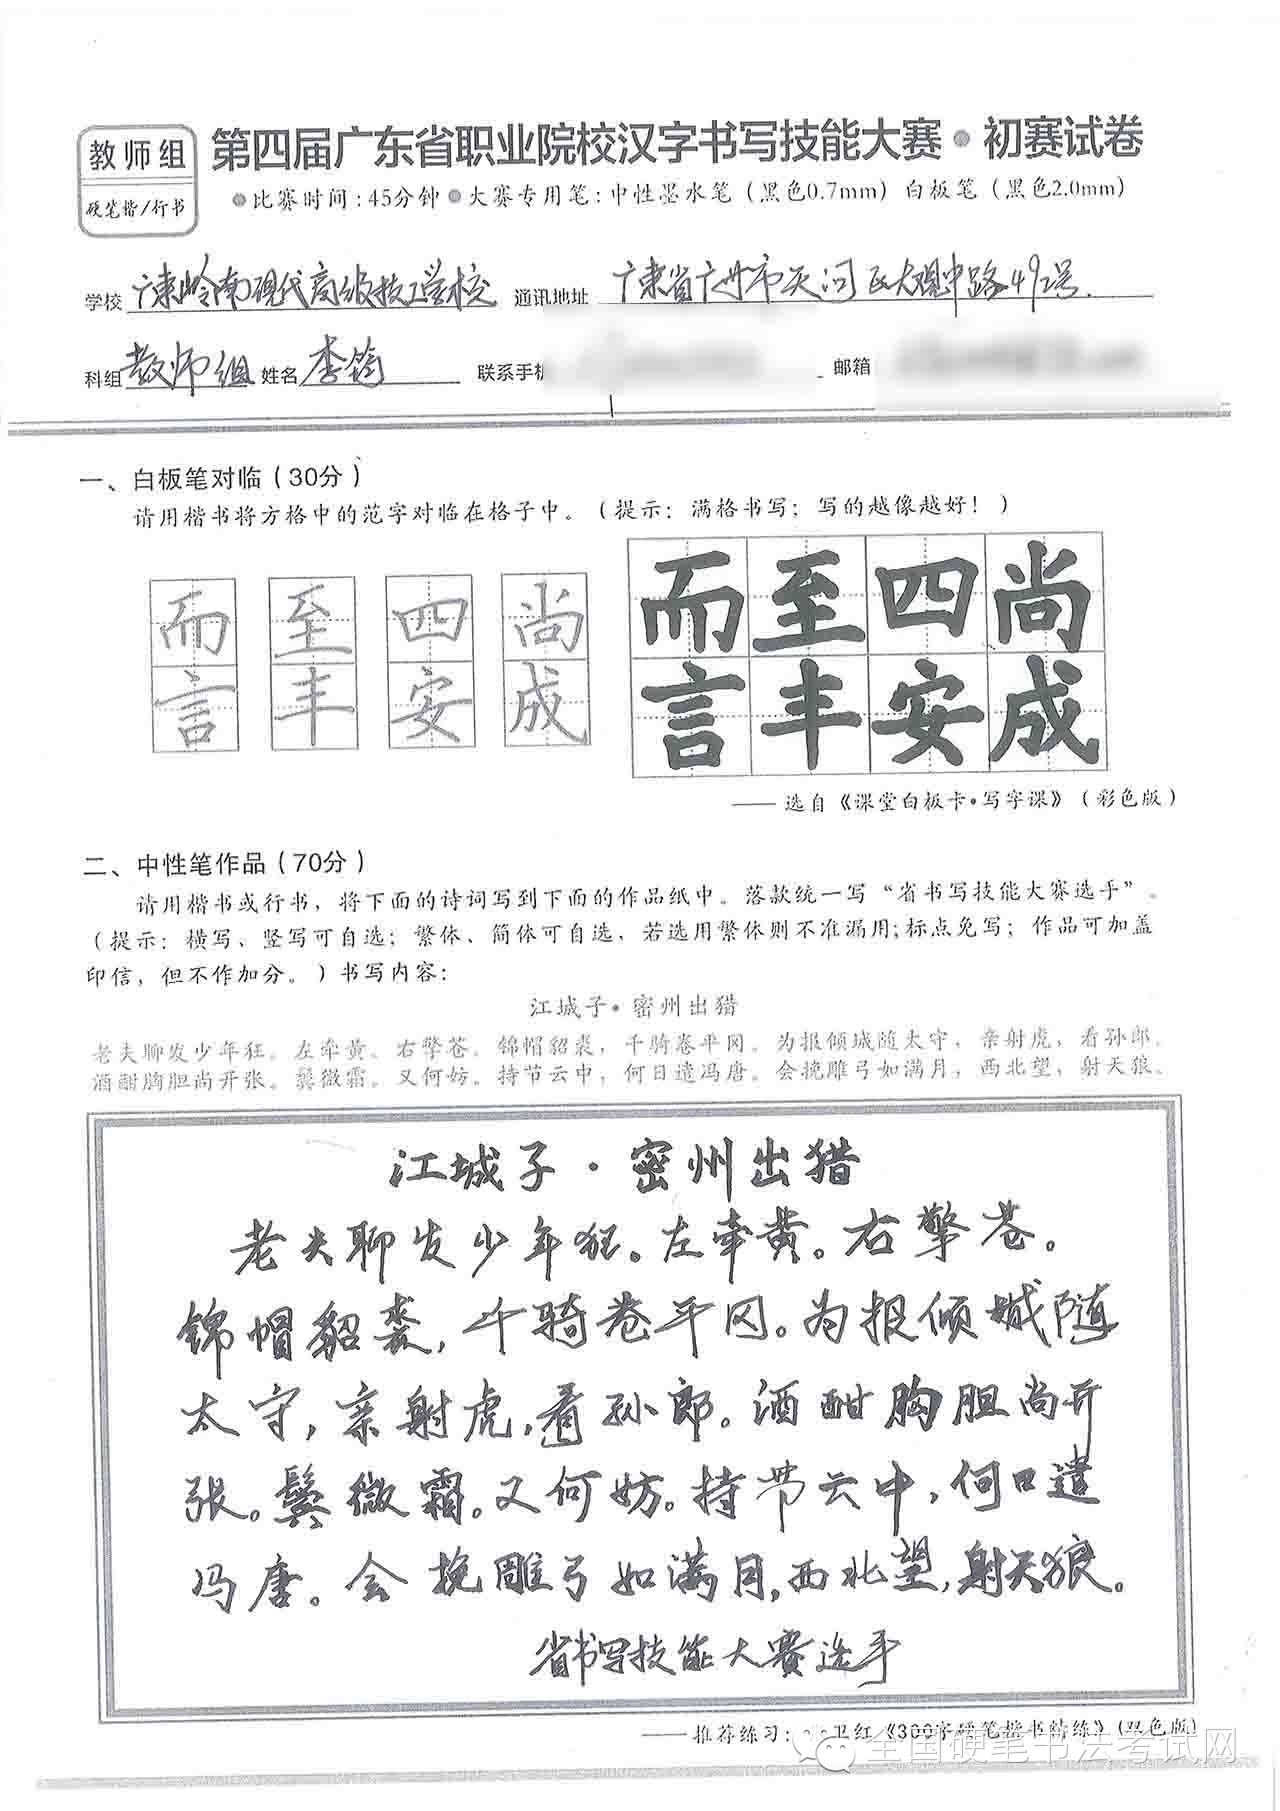 教师组
硬笔楷/行书
第四届广东省职业院校汉字书写技能大赛•初赛试卷
•比赛时间:45分钟•大赛专用笔:中性墨水笔(黑色0.7mm)白板笔(黑色2.0mm)
学校 广东岭南现代高级技工学校 通讯地址 广东省广州市天河区大观中路492号.
科组 教师组 姓名 李筠 联系手机 邮箱
一、白板笔对临(30分)
请用楷书将方格中的范字对临在格子中。(提示:满格书写;写的越像越好!)
而 至 四 尚 而 至 四 尚
言 丰 安 成 言 丰 安 成
——选自《课堂白板卡•写字课》(彩色版)
二、中性笔作品(70分)
请用楷书或行书,将下面的诗词写到下面的作品纸中。落款统一写“省书写技能大赛选手”。
(提示:横写、竖写可自选;繁体、简体可自选,若选用繁体则不准漏用;标点免写;作品可加盖
印信,但不作加分。)书写内容:
江城子•密州出猎
老夫聊发少年狂。左牵黄。右擎苍。锦帽貂裘,千骑卷平冈。为报倾城随太守,亲射虎,看孙郎。
酒酣胸胆尚开张。鬓微霜。又何妨。持节云中,何日遣冯唐。会挽雕弓如满月,西北望,射天狼。
江城子·密州出猎
老夫聊发少年狂。左牵黄。右擎苍。
锦帽貂裘,千骑卷平冈。为报倾城随
太守,亲射虎,看孙郎。酒酣胸胆尚开
张。鬓微霜。又何妨。持节云中,何日遣
冯唐。会挽雕弓如满月,西北望,射天狼。
省书写技能大赛选手
——推荐练习:卫红《300字硬笔楷书精练》(双色版)
全国硬笔书法考试网